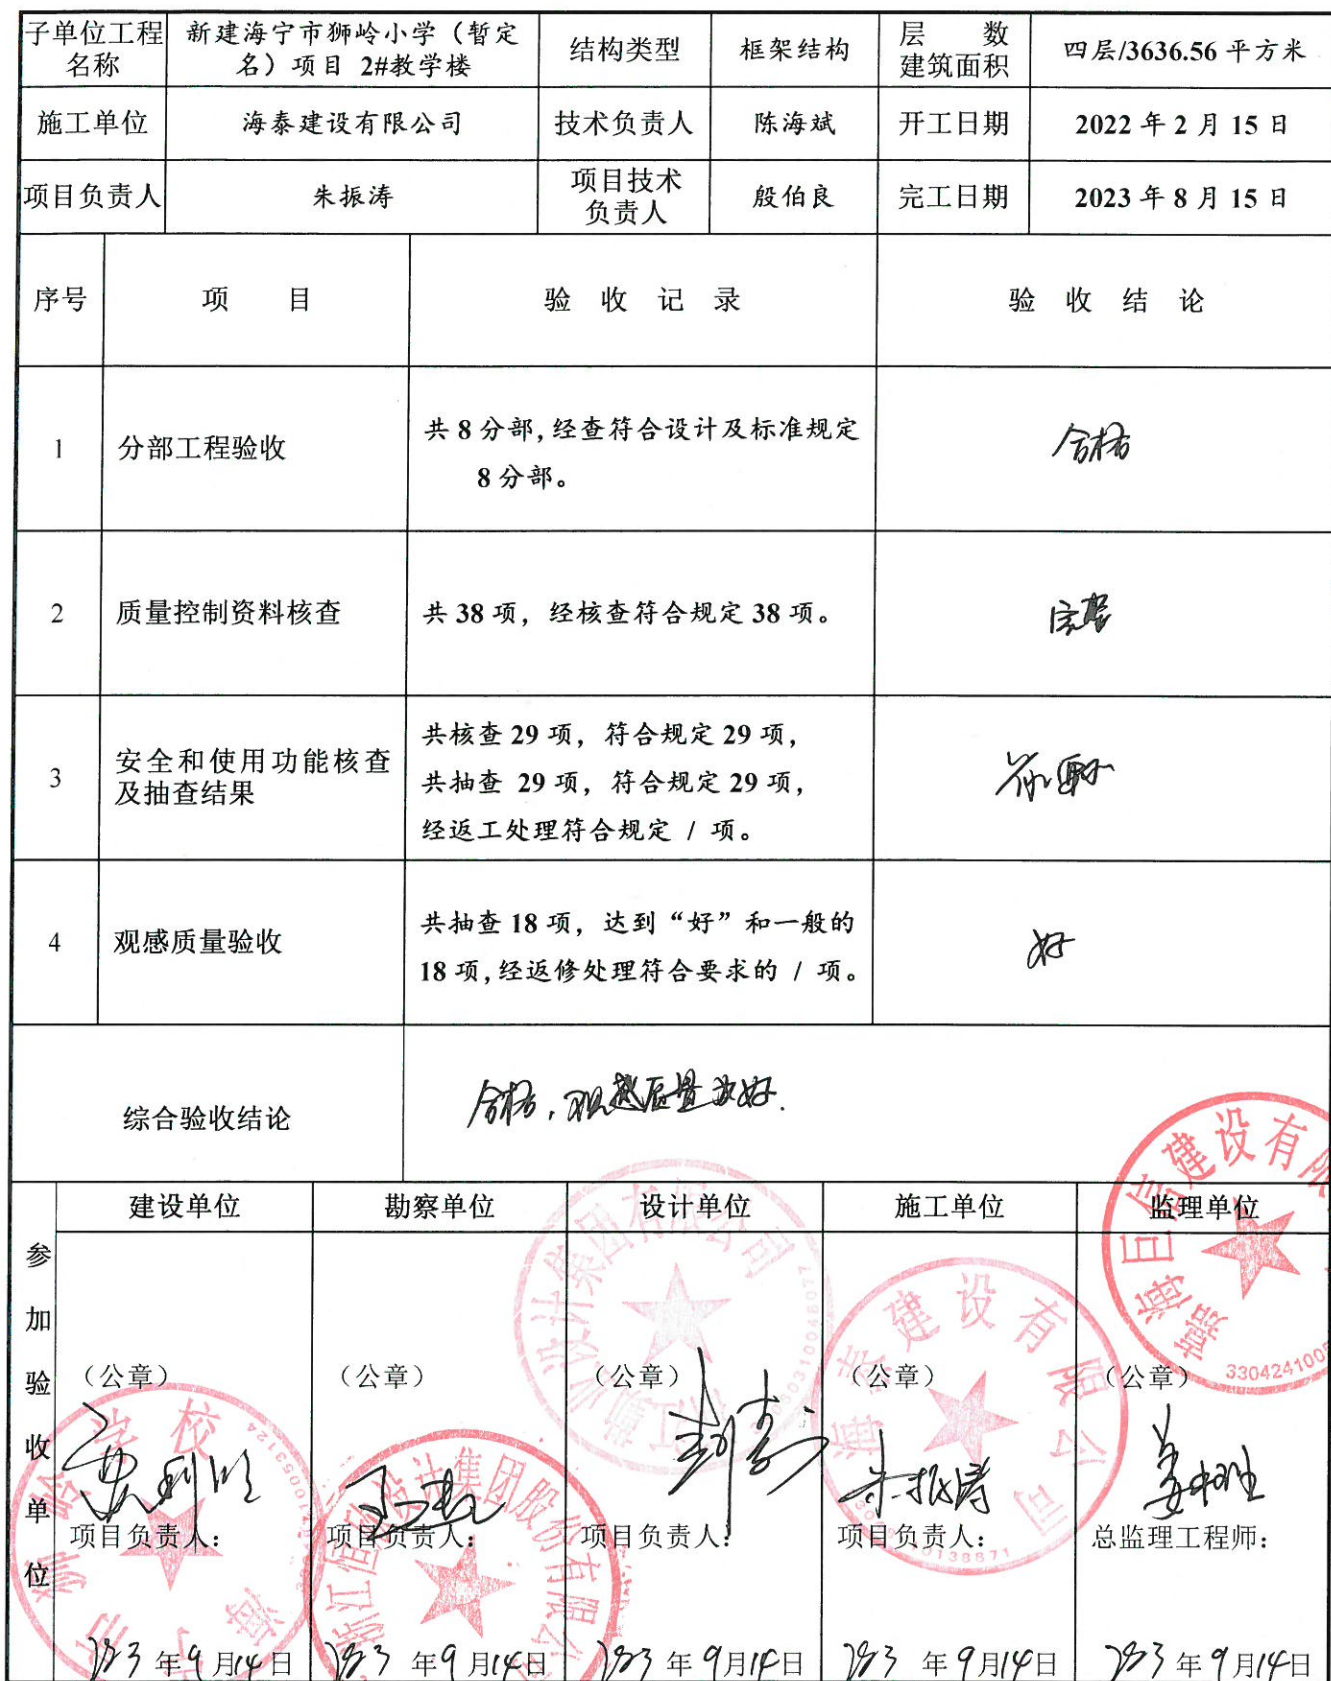 子单位工程名称 新建海宁市狮岭小学（暂定名）项目 2#教学楼 结构类型 框架结构 层数建筑面积 四层/3636.56 平方米
施工单位 海泰建设有限公司 技术负责人 陈海斌 开工日期 2022 年 2 月 15 日
项目负责人 朱振涛 项目技术负责人 殷伯良 完工日期 2023 年 8 月 15 日
序号 项目 验收记录 验收结论
1 分部工程验收 共 8 分部，经查符合设计及标准规定
8 分部。 合格
2 质量控制资料核查 共 38 项，经核查符合规定 38 项。 完整
3 安全和使用功能核查及抽查结果 共核查 29 项，符合规定 29 项，
共抽查 29 项，符合规定 29 项，
经返工处理符合规定 / 项。
4 观感质量验收 共抽查 18 项，达到“好”和一般的
18 项，经返修处理符合要求的 / 项。 好
综合验收结论 合格，观感质量为好.
参加验收单位
建设单位 勘察单位 设计单位 施工单位 监理单位
（公章） （公章） （公章） （公章） （公章）
朱振涛
项目负责人： 项目负责人： 项目负责人： 项目负责人： 总监理工程师：
2023 年 9 月 14 日 2023 年 9 月 14 日 2023 年 9 月 14 日 2023 年 9 月 14 日 2023 年 9 月 14 日
海泰建设有限公司